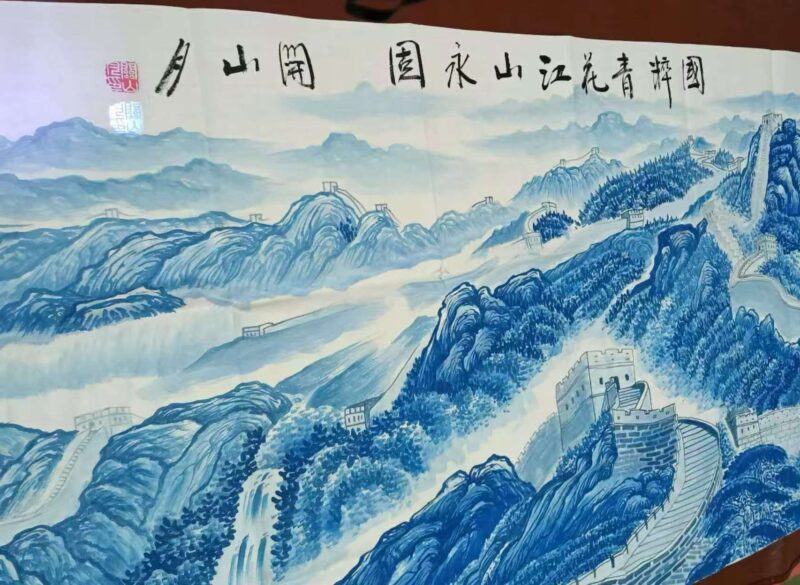 國粹青花江山永固 開山月